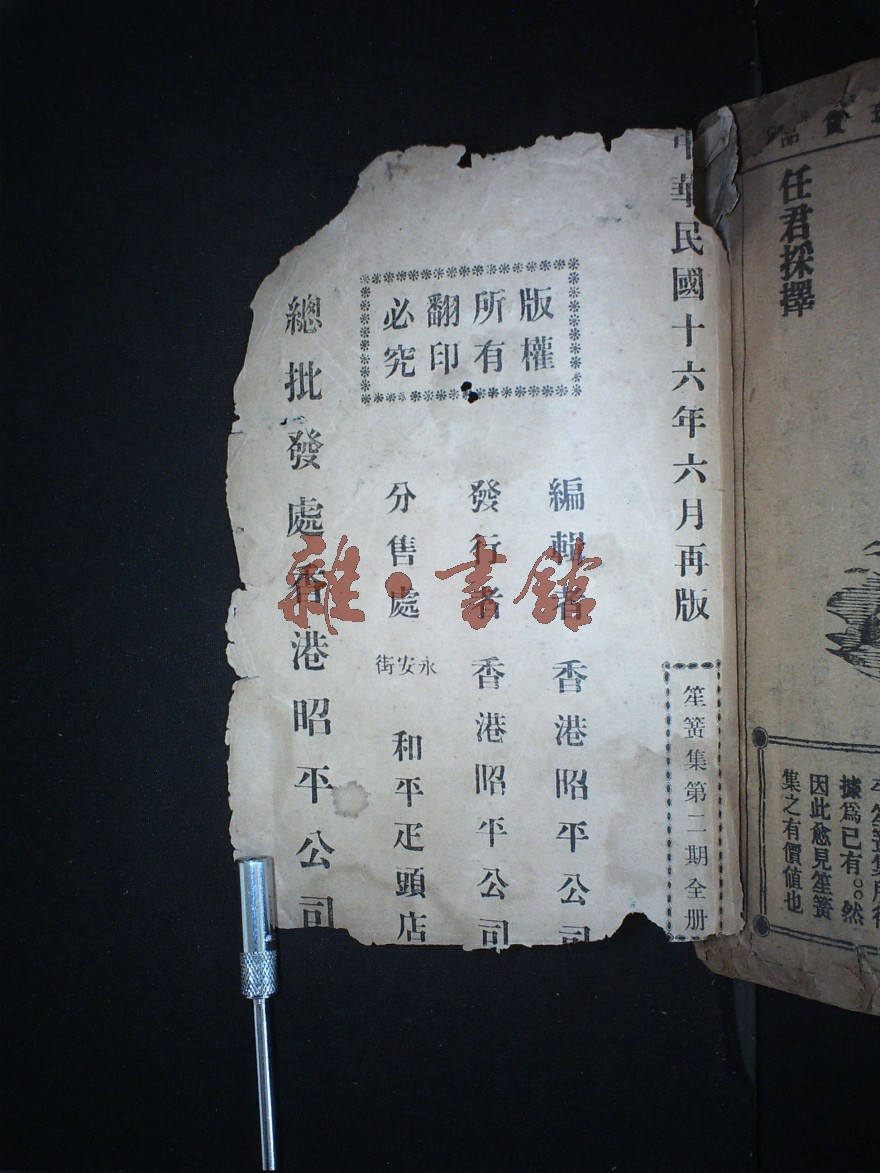 中華民國十六年六月再版
笙簧集第二期全册
版權
所有
翻印
必究
編輯者 香港昭平公司
發行者 香港昭平公司
分售處 永安街 和平疋頭店
總批發處香港昭平公司
任君採擇
據爲己有。。然
因此愈見笙簧
集之有價値也
雜·書館